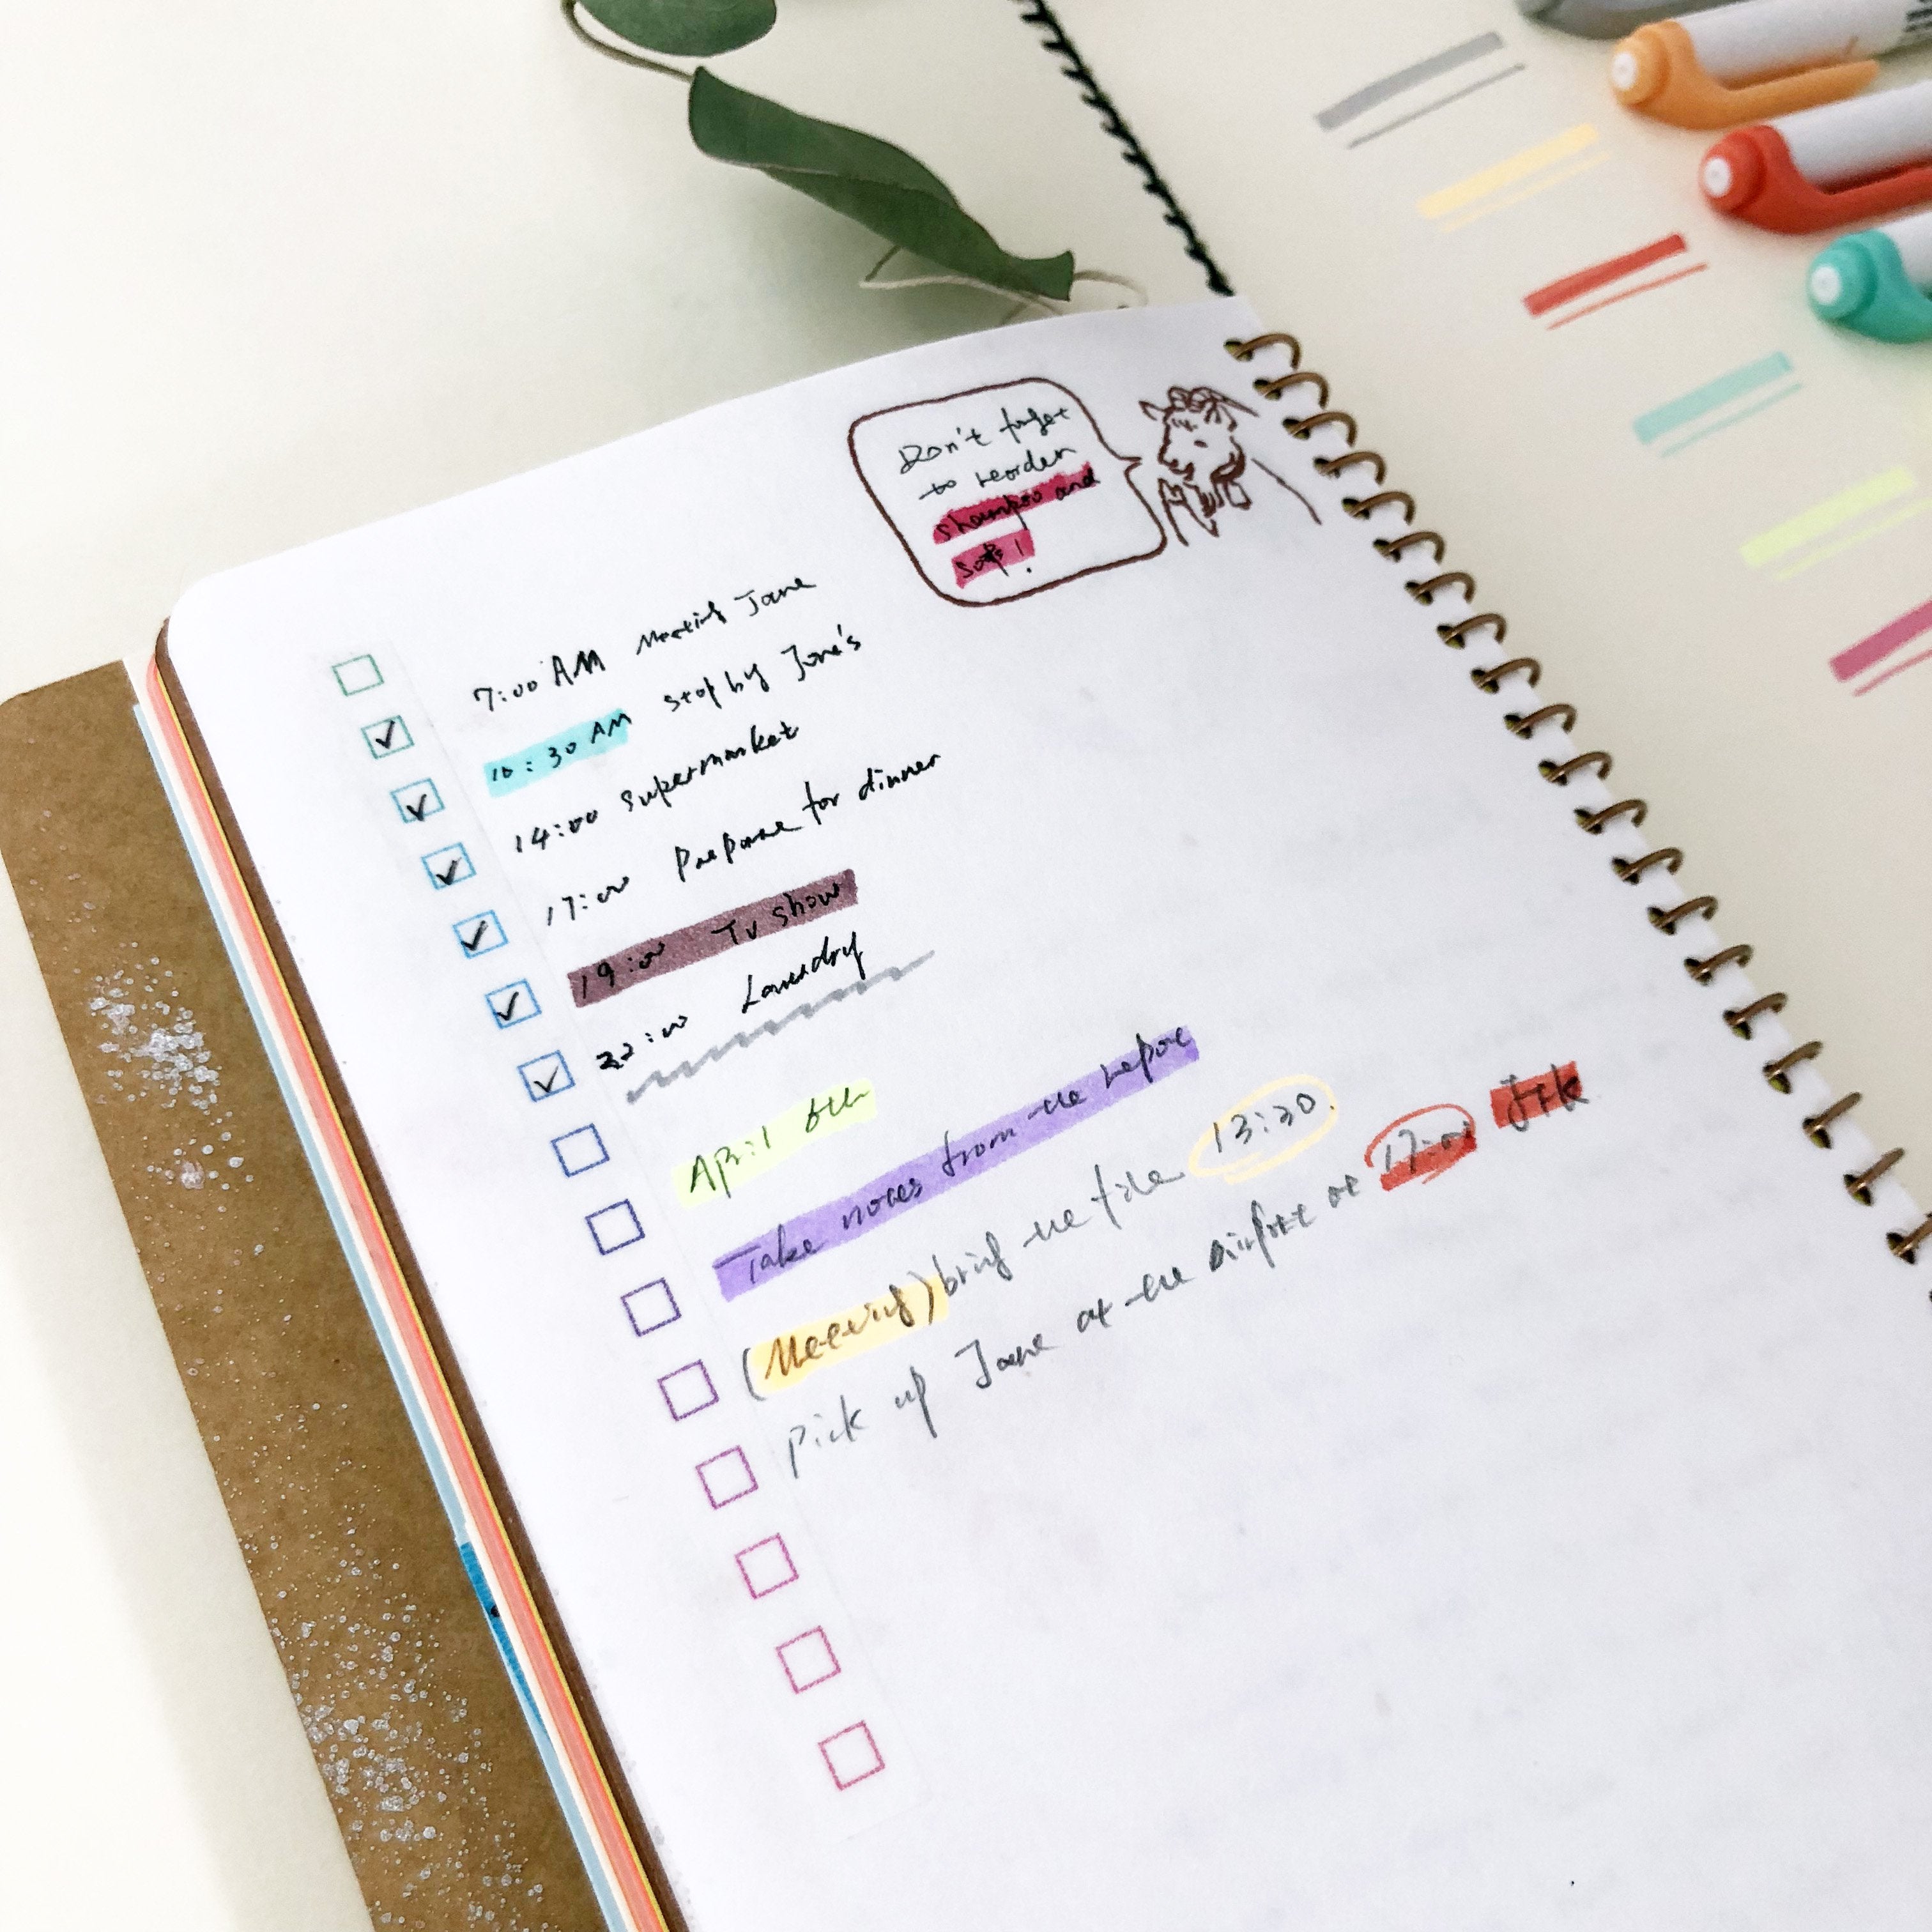 Don't forget
to reorder
shampoo and
soap!
7:00 AM Meeting Jane
10:30 AM stop by Jone's
14:00 Supermarket
17:00 Prepare for dinner
19:00 TV show
22:00 Laundry
April 6th
Take notes from the
(Meeting) bring the file 13:30.
pick up Jane at the airport at 17:00 JFK